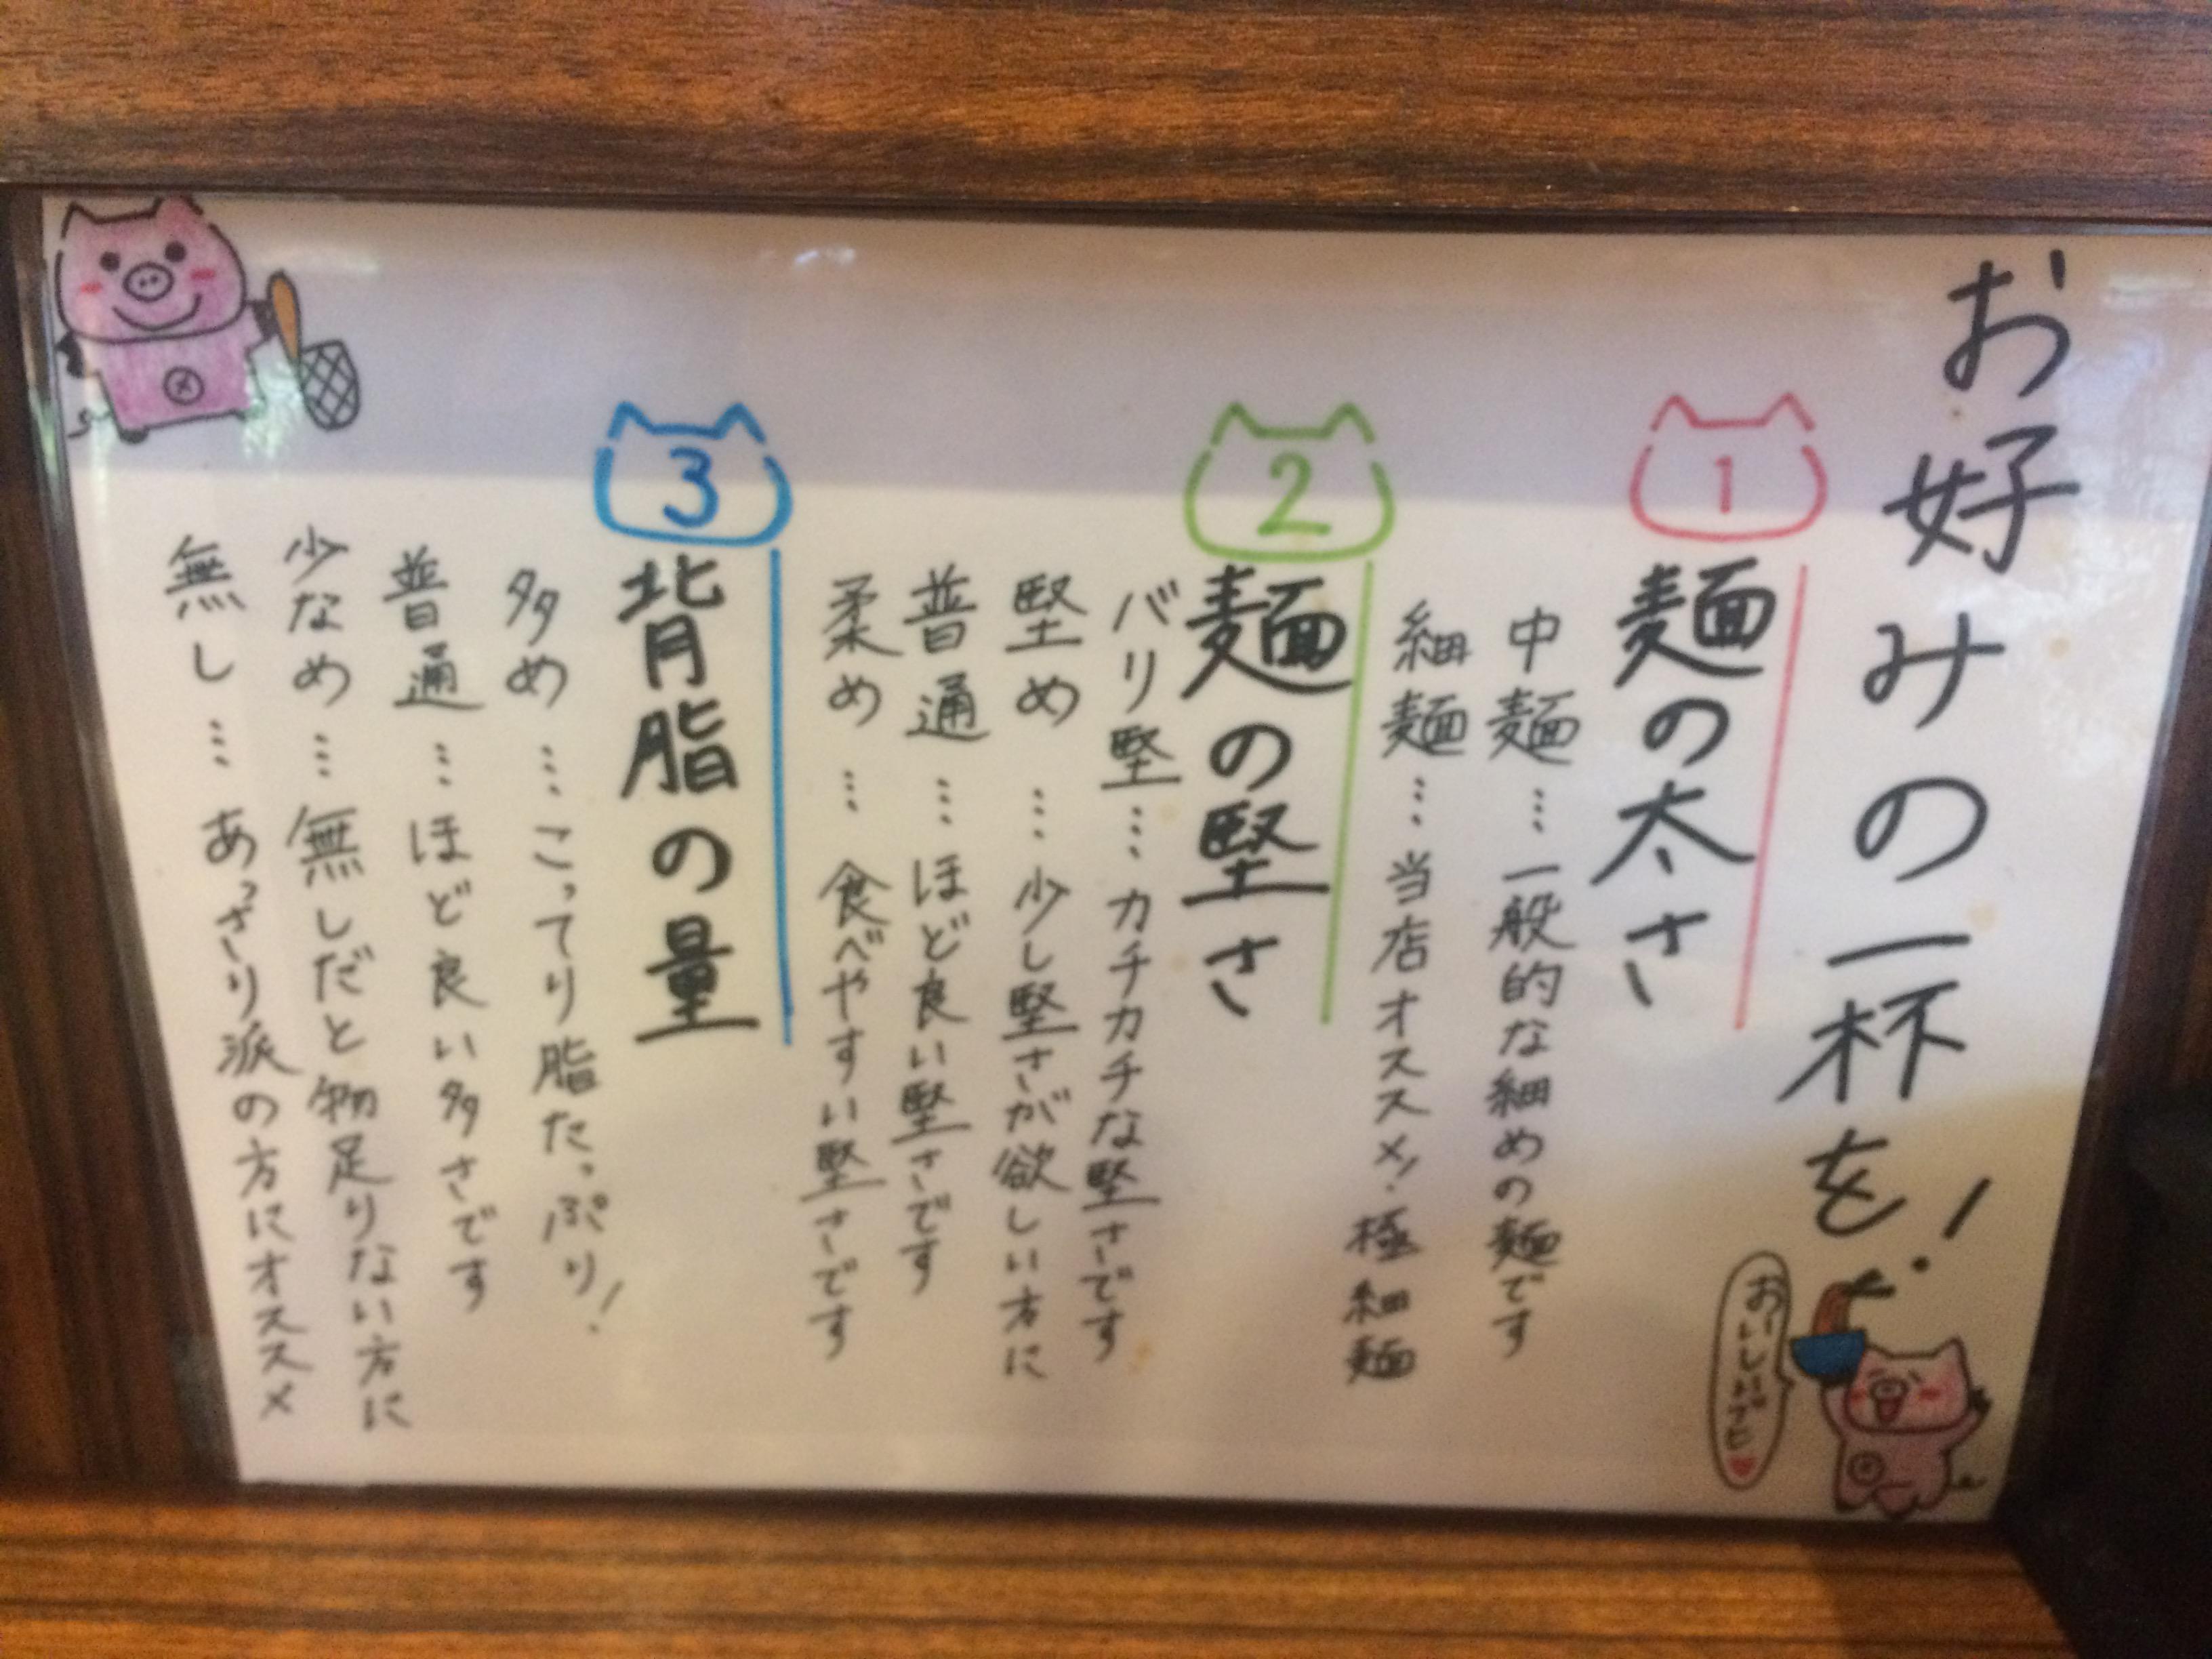 お好みの一杯を!
おいしいブヒ
1
麺の太さ
中麺…一般的な細めの麺です
細麺…当店オススメ!極細麺
2
麺の堅さ
バリ堅…カチカチな堅さです
堅め…少し堅さが欲しい方に
普通…ほど良い堅さです
柔め…食べやすい堅さです
3
背脂の量
多め…こってり脂たっぷり!
普通…ほど良い多さです
少なめ…無しだと物足りない方に
無し…あっさり派の方にオススメ